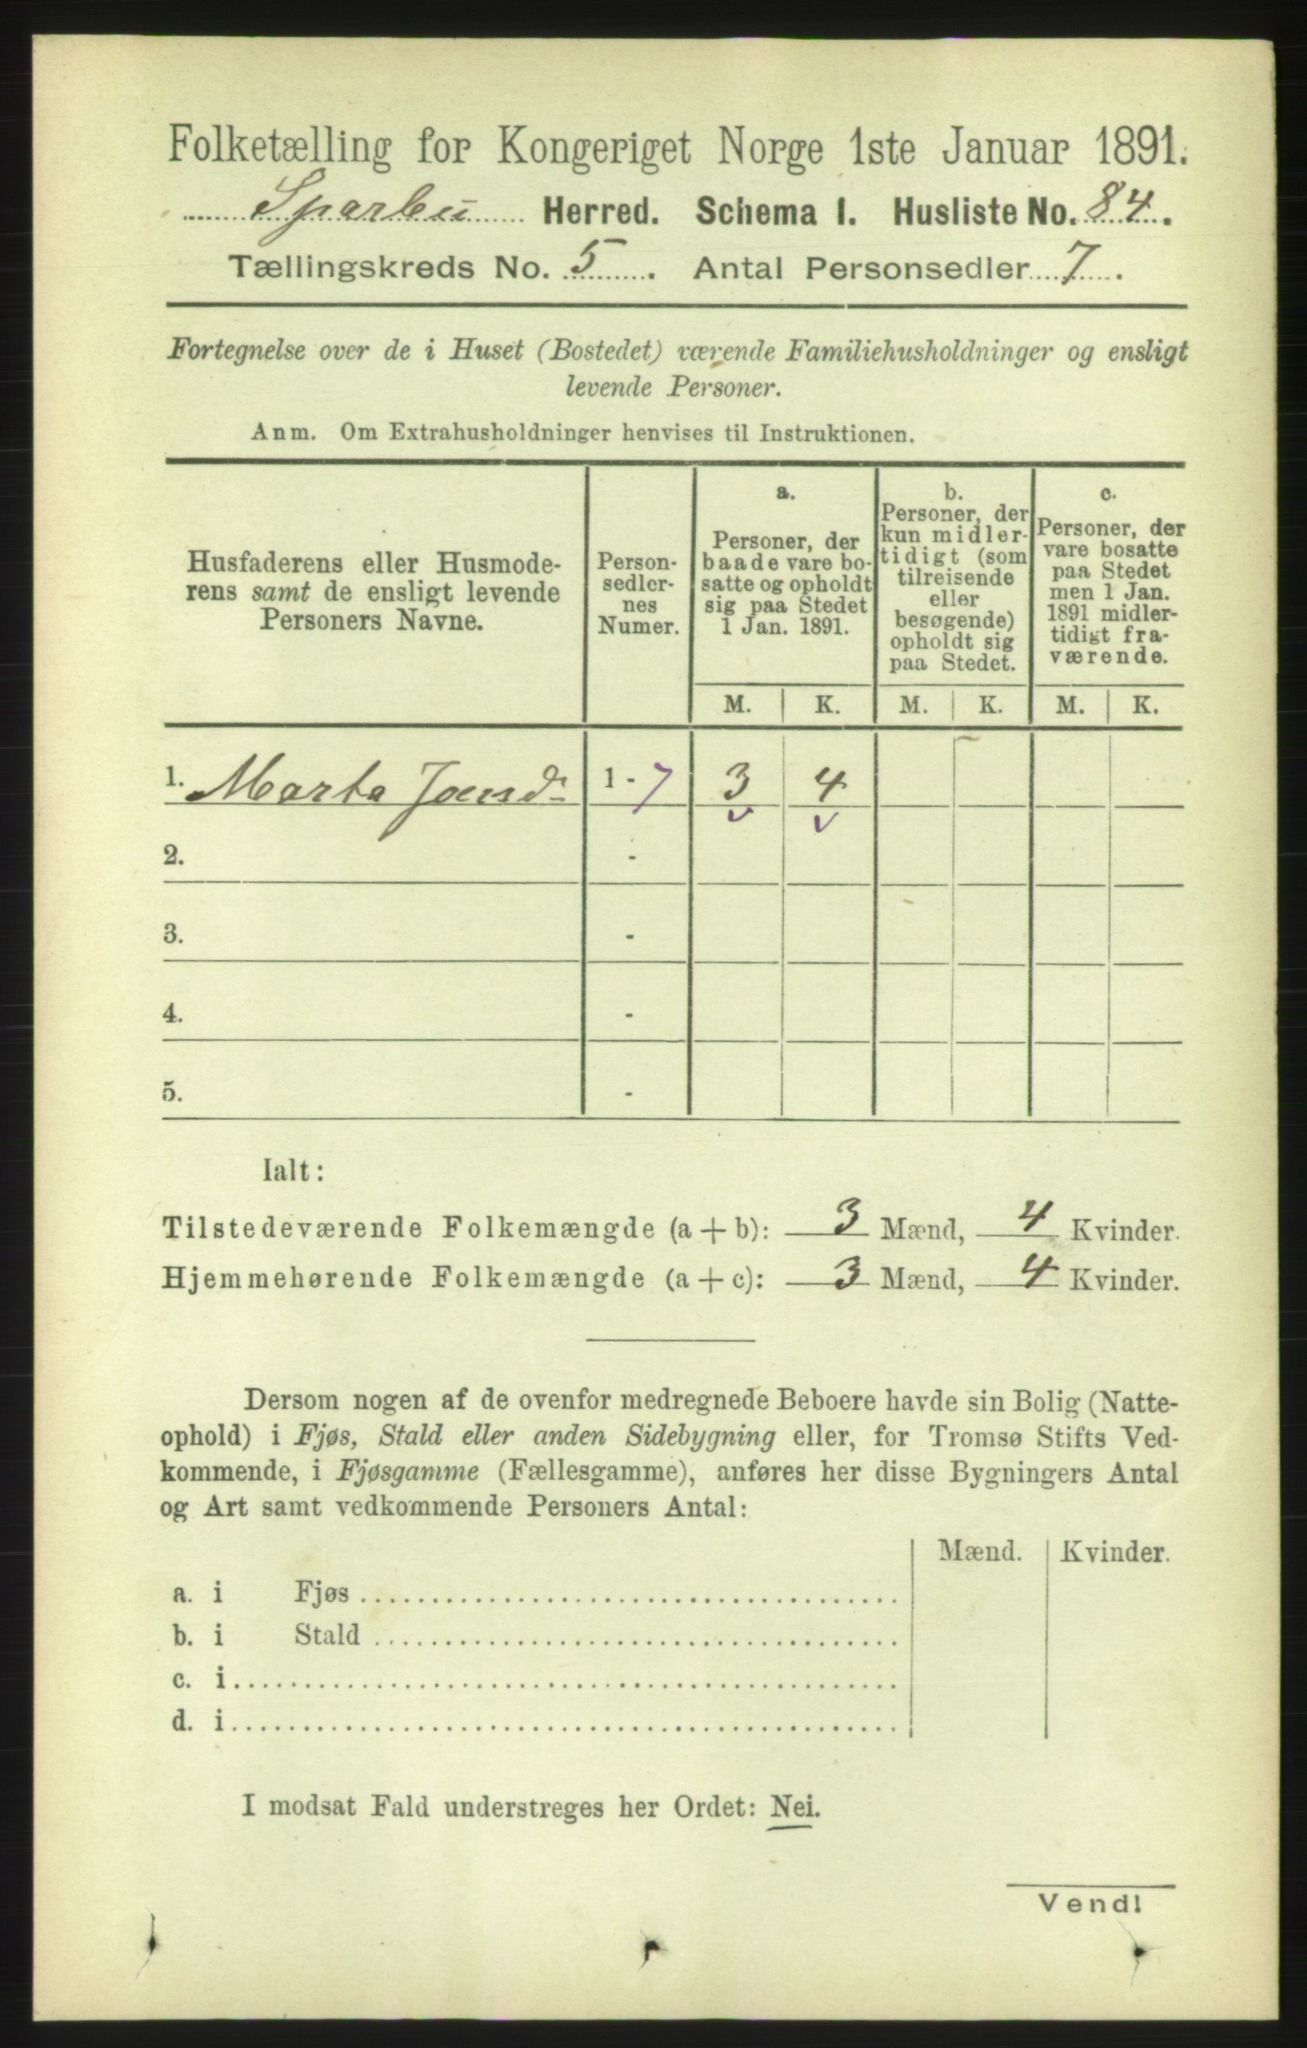 Folketælling for Kongeriget Norge 1ste Januar 1891.
Sparbu Herred. Schema I. Husliste No. 84.
Tællingskreds No. 5. Antal Personsedler 7.
Fortegnelse over de i Huset (Bostedet) værende Familiehusholdninger og ensligt
levende Personer.
Anm. Om Extrahusholdninger henvises til Instruktionen.
Husfaderens eller Husmode-
rens samt de ensligt levende
Personers Navne.
Person-
sedler-
nes
Numer.
a.
Personer, der
baade vare bo-
satte og opholdt
sig paa Stedet
1 Jan. 1891.
b.
Personer, der
kun midler-
tidigt (som
tilreisende
eller
besøgende)
opholdt sig
paa Stedet.
c.
Personer, der
vare bosatte
paa Stedet
men 1 Jan.
1891 midler-
tidigt fra-
værende.
M. K. M. K. M. K.
1. Marta Jensd. 1 - 7 3 4
2. -
3. -
4. -
5. -
Ialt:
Tilstedeværende Folkemængde (a + b): 3 Mænd, 4 Kvinder.
Hjemmehørende Folkemængde (a + c): 3 Mænd, 4 Kvinder.
Dersom nogen af de ovenfor medregnede Beboere havde sin Bolig (Natte-
ophold) i Fjøs, Stald eller anden Sidebygning eller, for Tromsø Stifts Ved-
kommende, i Fjøsgamme (Fællesgamme), anføres her disse Bygningers Antal
og Art samt vedkommende Personers Antal:
Mænd. Kvinder.
a. i Fjøs
b. i Stald
c. i
d. i
I modsat Fald understreges her Ordet: Nei.
Vendl